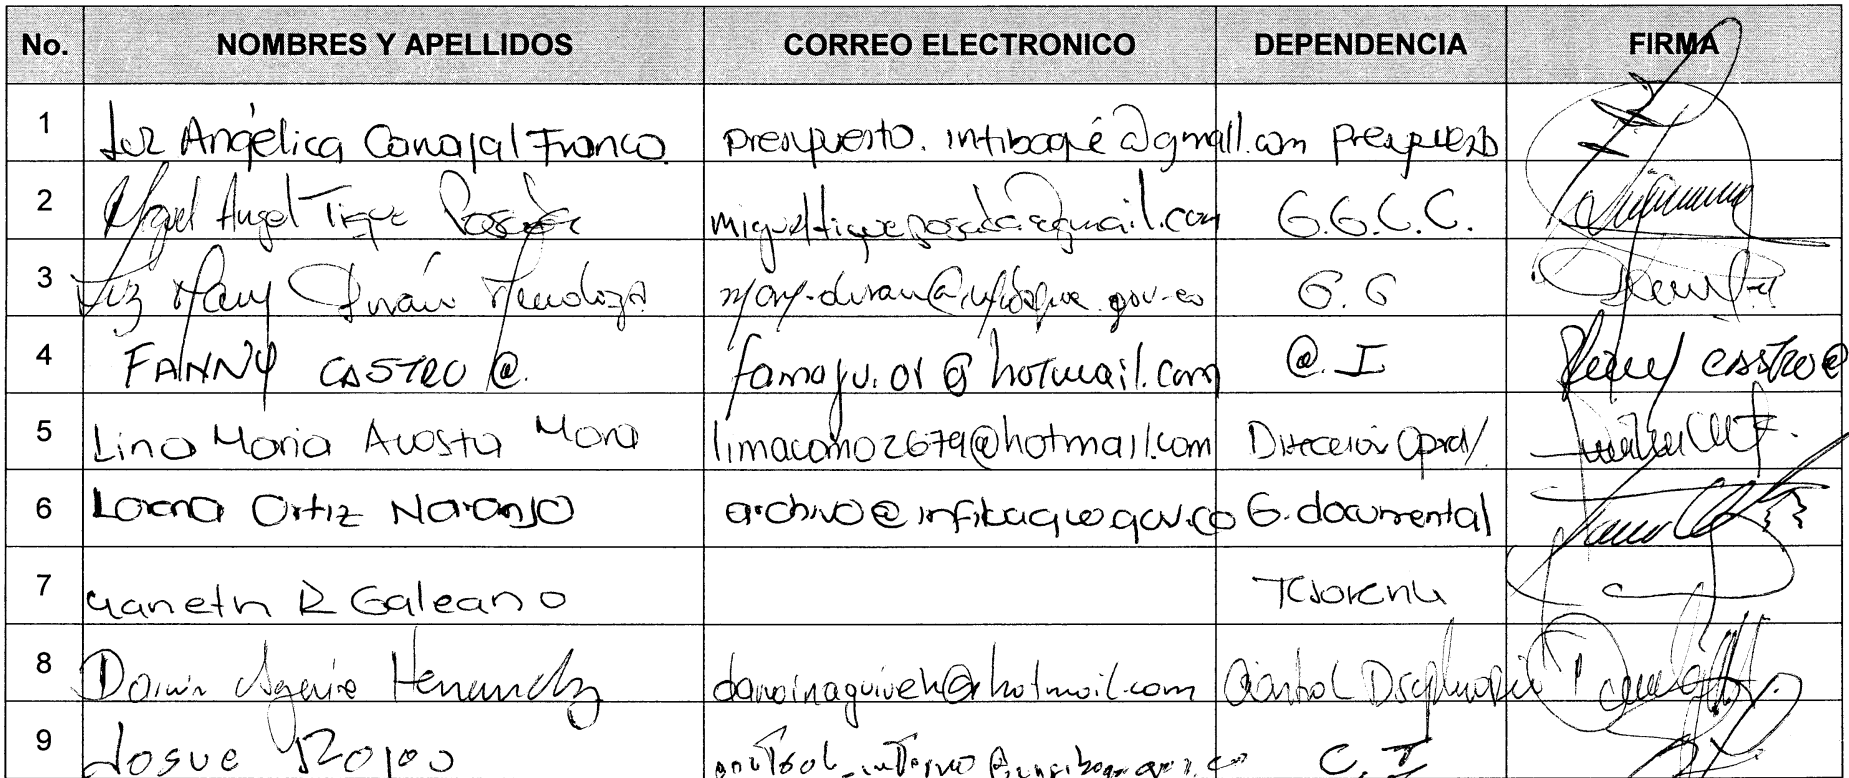 No. NOMBRES Y APELLIDOS CORREO ELECTRONICO DEPENDENCIA FIRMA
1 Luz Angélica Carvajal Franco presupuesto.infibagué@gmail.com presupuesto
2 Miguel Angel Tique Posada migueltiqueposada@gmail.com G.G.C.C.
3 Luz Mary Durán Mendoza mary.duran@infibague.gov.co G.G
4 FANNY CASTRO @. famagu.01@hotmail.com @.I FANNY CASTRO @
5 Lina Maria Acosta Mora limacomo2679@hotmail.com Dirección Operal
6 Lorena Ortiz Naranjo archivo@infibague.gov.co G.documental
7 Yaneth R Galeano Tesoreria
8 Darwin Aguirre Hernandez @hotmail.com Control Disciplinario
9 Josue C.I